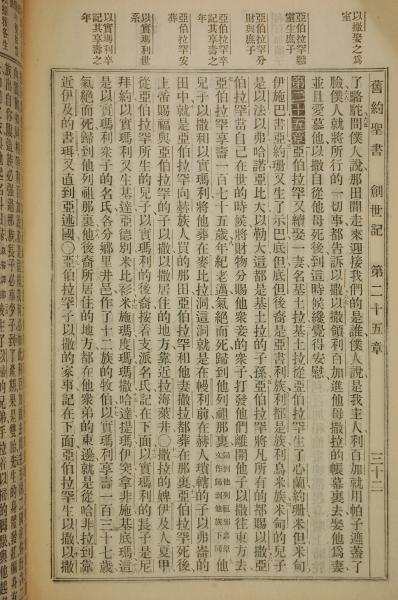 舊約聖書 創世記 第二十五章 三十二
以撒娶之爲室
了路詫問僕人說那田間走來迎接我們的是誰僕人說是我主人利百加就用帕子遮蓋了
臉僕人就將所行的一切事都告訴以撒以撒領利百加進他母撒拉的帳幕裏去娶他爲妻
並且愛慕他以撒自從他母死後到這時候纔覺得安慰
亞伯拉罕繼室生庶子
第二十五章亞伯拉罕續娶一妻名基土拉基土拉從亞伯拉罕生了心蘭約珊米但米甸
伊施巴書亞約珊又生了示巴底但底但後裔是亞書利族利都是族利烏米族米甸的兒子
是以法以弗哈諾亞比大以勒大這都是基土拉的子孫亞伯拉罕將凡所有的都賜以撒亞
亞伯拉罕分財與庶子
伯拉罕當自己在世的時候將財物分賜他衆妾的衆子打發他們離開他子以撒往東方去
亞伯拉罕卒記其享壽之年
亞伯拉罕享壽一百七十五歲年紀老邁氣絕而死歸到他列祖那裏歸到他列祖那裏原文作歸到他族下同他
亞伯拉罕葬
兒子以撒和以實瑪利將他葬在麥比拉洞這洞就是在幔利前在赫人瑣轄的子以弗崙的
田中就是亞伯拉罕向赫族人買的那田亞伯拉罕和他妻撒拉都葬在那裏亞伯拉罕死後
以實瑪利世系
上帝賜福與亞伯拉罕的子以撒以撒居住的地方靠近拉海萊井〇撒拉的婢伊及人夏甲
從亞伯拉罕所生的兒子以實瑪利的後裔按着支派名氏記在下面以實瑪利的長子是尼
拜約以實瑪利又生基達亞德別米比衫米施瑪度瑪瑪撒哈達提瑪伊突拿非施基底瑪這
以實瑪利卒記其享壽之年
是以實瑪利衆子的名氏各分鄉里井邑作了十二族的牧伯以實瑪利享壽一百三十七歲
氣絕而死歸到他列祖那裏他後裔所居住的地方都在他衆弟的東邊就是從哈非拉到靠
近伊及的書珥又直到亞述國〇亞伯拉罕子以撒的家事記在下面亞伯拉罕生以撒以撒